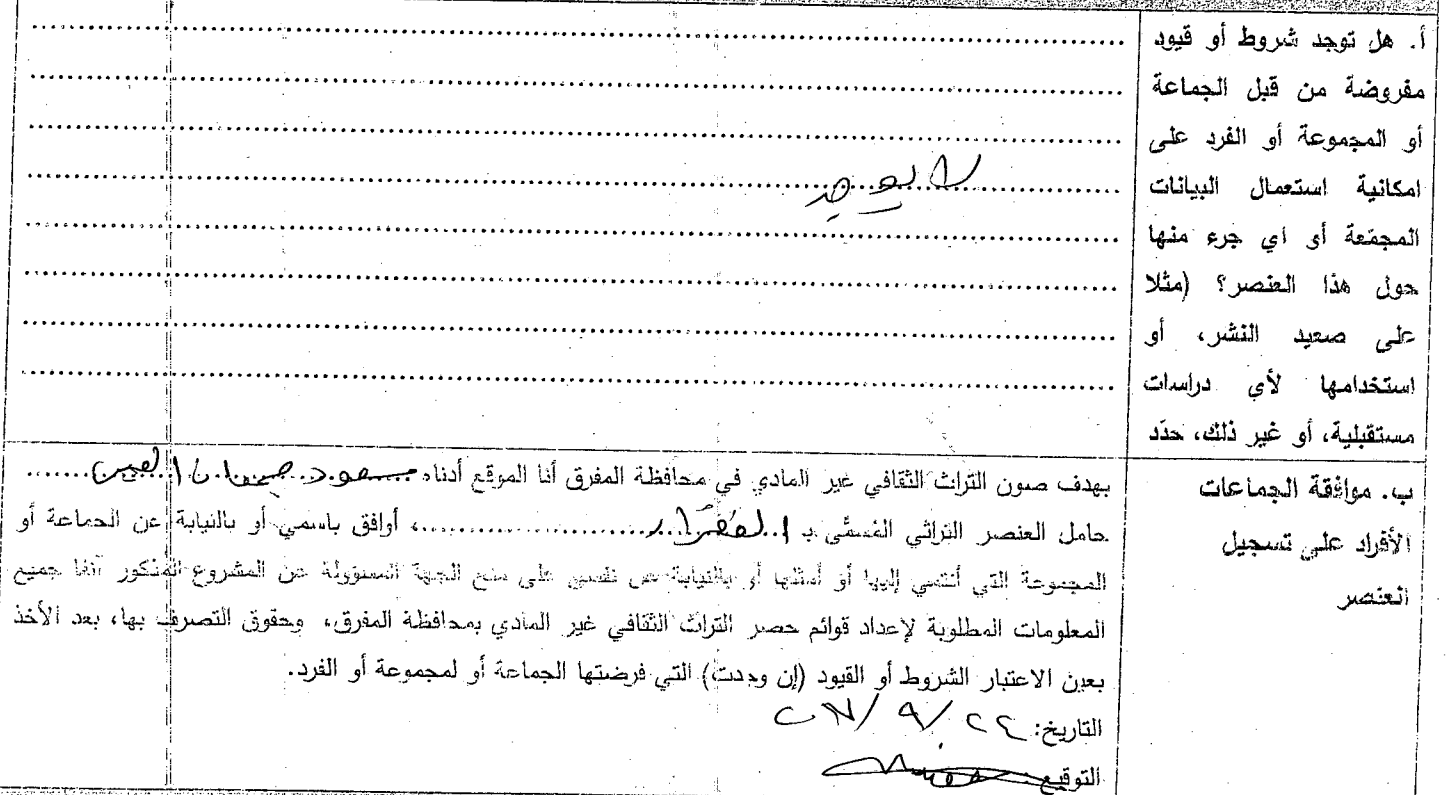 أ. هل توجد شروط أو قيود
مفروضة من قبل الجماعة
أو المجموعة أو الفرد على
امكانية استعمال البيانات
المجمّعة أو اي جزء منها
حول هذا العنصر؟ (مثلا
على صعيد النشر، أو
استخدامها لأي دراسات
مستقبلية، أو غير ذلك، حدّد
لا يوجد
ب. موافقة الجماعات
الأفراد على تسجيل
العنصر
بهدف صون التراث الثقافي غير المادي في محافظة المفرق أنا الموقع أدناه
حامل العنصر التراثي المُسمَّى بـ ........................، أوافق باسمي أو بالنيابة عن الجماعة أو
المجموعة التي أنتمي إليها أو أمثلها أو بالنيابة عن نفسي على منح الجهة المسؤولة عن المشروع المذكور آنفا جميع
المعلومات المطلوبة لإعداد قوائم حصر التراث الثقافي غير المادي بمحافظة المفرق، وحقوق التصرف بها، بعد الأخذ
بعين الاعتبار الشروط أو القيود (إن وجدت) التي فرضتها الجماعة أو لمجموعة أو الفرد.
التاريخ:
التوقيع: